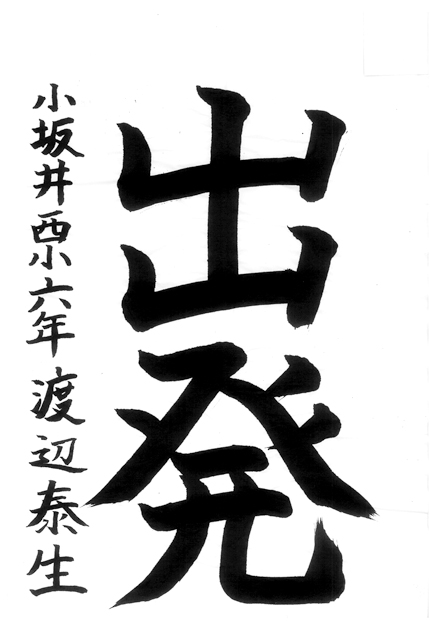 出発
小坂井西小六年渡辺泰生